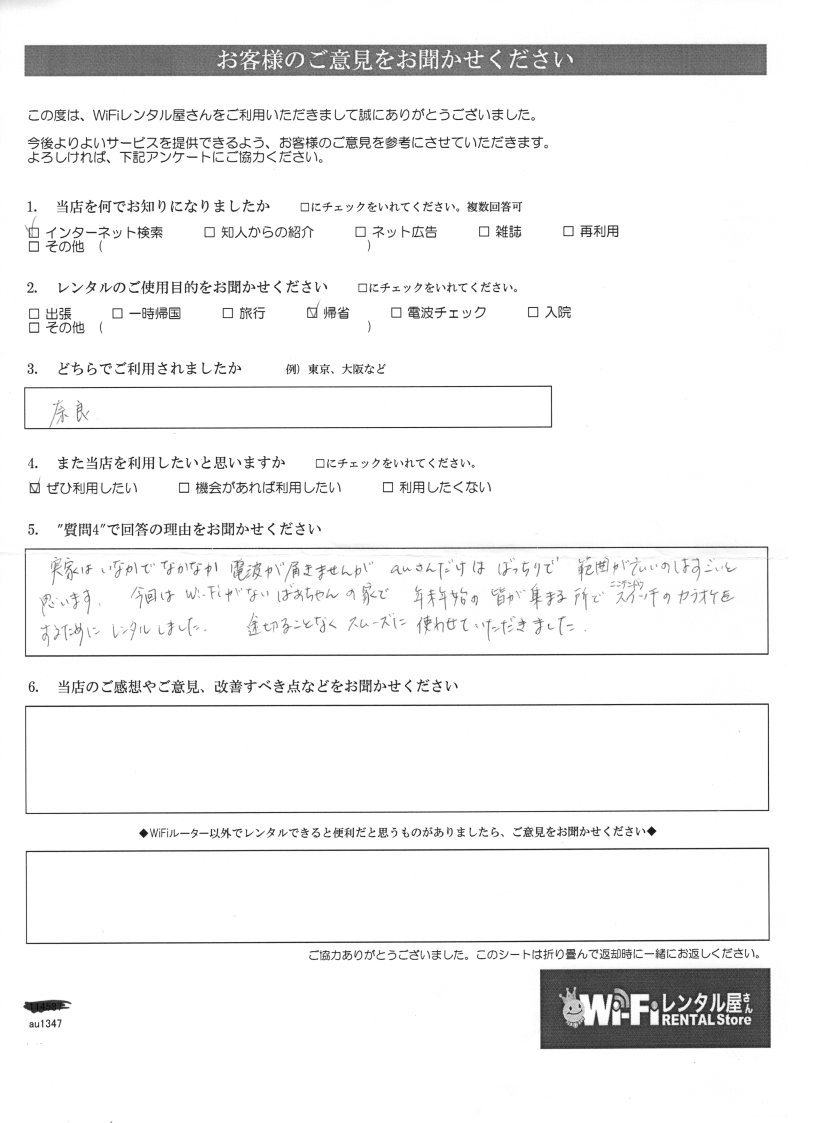 お客様のご意見をお聞かせください
この度は、WiFiレンタル屋さんをご利用いただきまして誠にありがとうございました。
今後よりよいサービスを提供できるよう、お客様のご意見を参考にさせていただきます。
よろしければ、下記アンケートにご協力ください。
1. 当店を何でお知りになりましたか □にチェックをいれてください。複数回答可
☑ インターネット検索 □ 知人からの紹介 □ ネット広告 □ 雑誌 □ 再利用
□ その他 ( )
2. レンタルのご使用目的をお聞かせください □にチェックをいれてください。
□ 出張 □ 一時帰国 □ 旅行 ☑ 帰省 □ 電波チェック □ 入院
□ その他 ( )
3. どちらでご利用されましたか 例）東京、大阪など
奈良
4. また当店を利用したいと思いますか □にチェックをいれてください。
☑ ぜひ利用したい □ 機会があれば利用したい □ 利用したくない
5. ”質問4”で回答の理由をお聞かせください
実家はいなかでなかなか電波が届きませんが auさんだけは ばっちりで 範囲が広いのはすごいと
思います. 今回は Wi-Fiがないばあちゃんの家で 年末年始の皆が集まる所で ニンテンドウスイッチのカラオケを
するために レンタルしました. 途切ることなくスムーズに使わせていただきました.
6. 当店のご感想やご意見、改善すべき点などをお聞かせください
◆WiFiルーター以外でレンタルできると便利だと思うものがありましたら、ご意見をお聞かせください◆
ご協力ありがとうございました。このシートは折り畳んで返却時に一緒にお返しください。
au1347
Wi-Fiレンタル屋さん
RENTAL Store